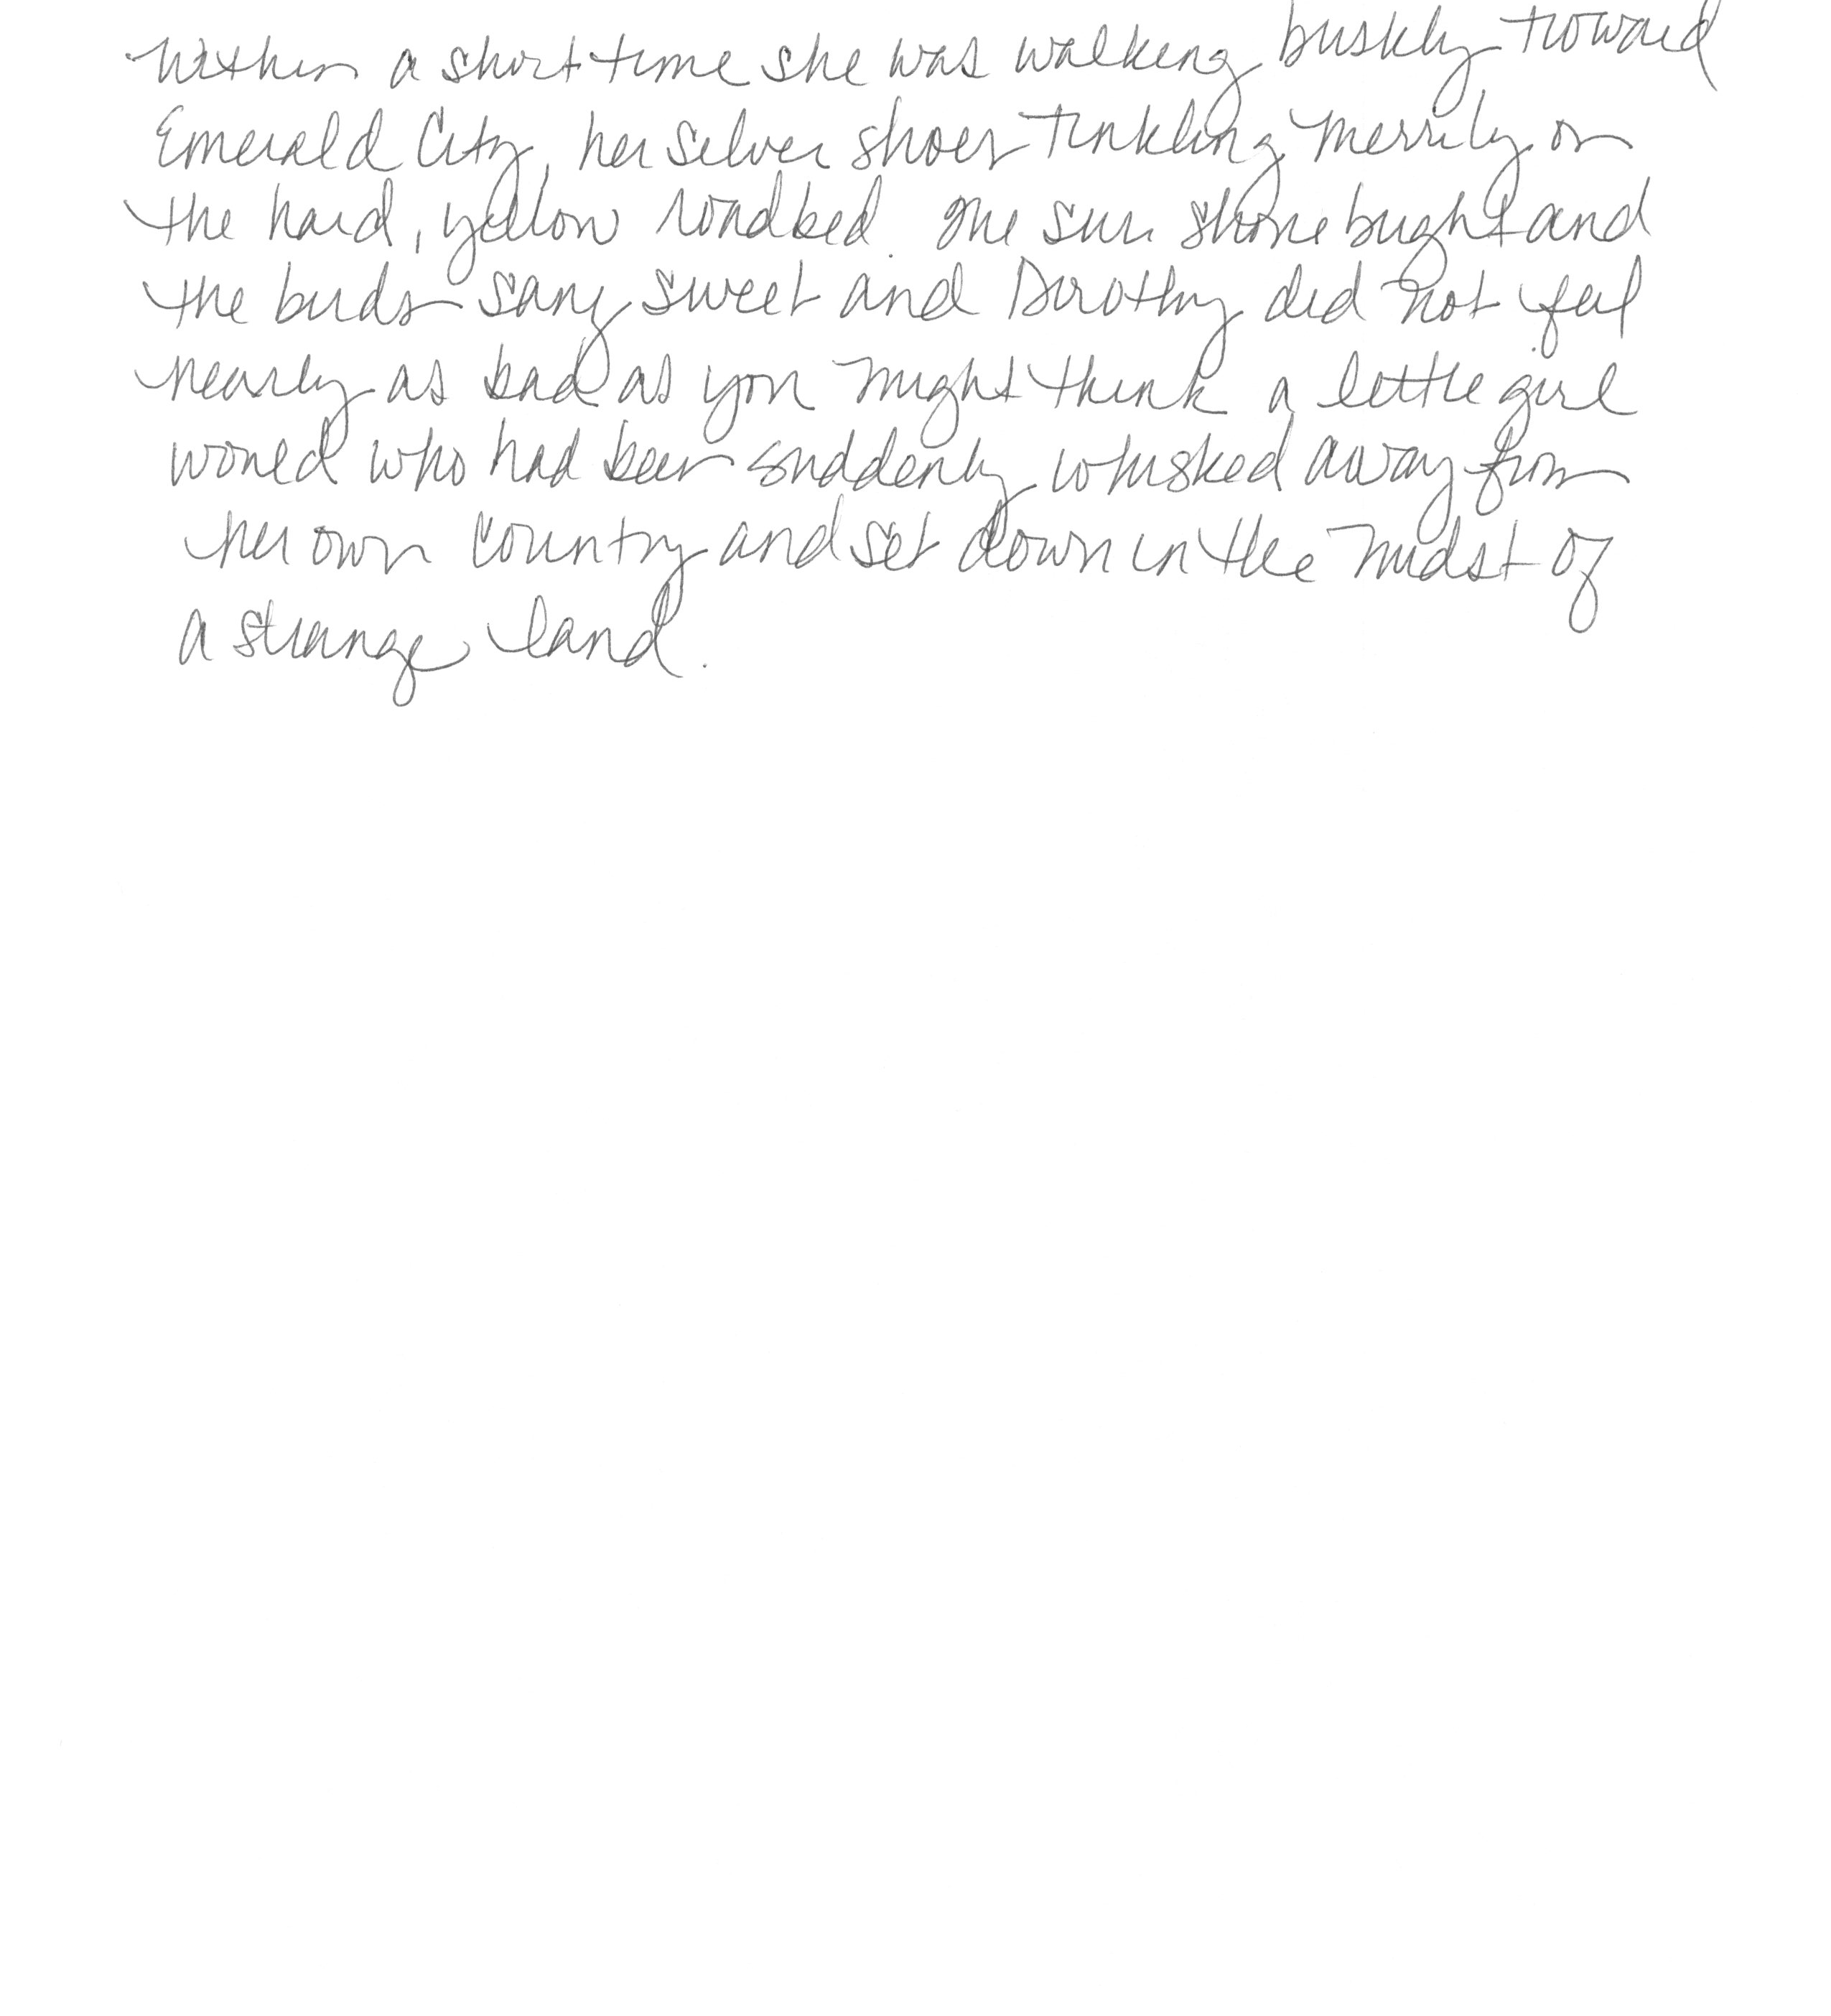 Within a short time she was walking briskly toward
Emerald City, her silver shoes tinkling merrily on
the hard, yellow roadbed. The sun shone bright and
the birds sang sweet and Dorothy did not feel
nearly as bad as you might think a little girl
would who had been suddenly whisked away from
her own country and set down in the midst of
a strange land.